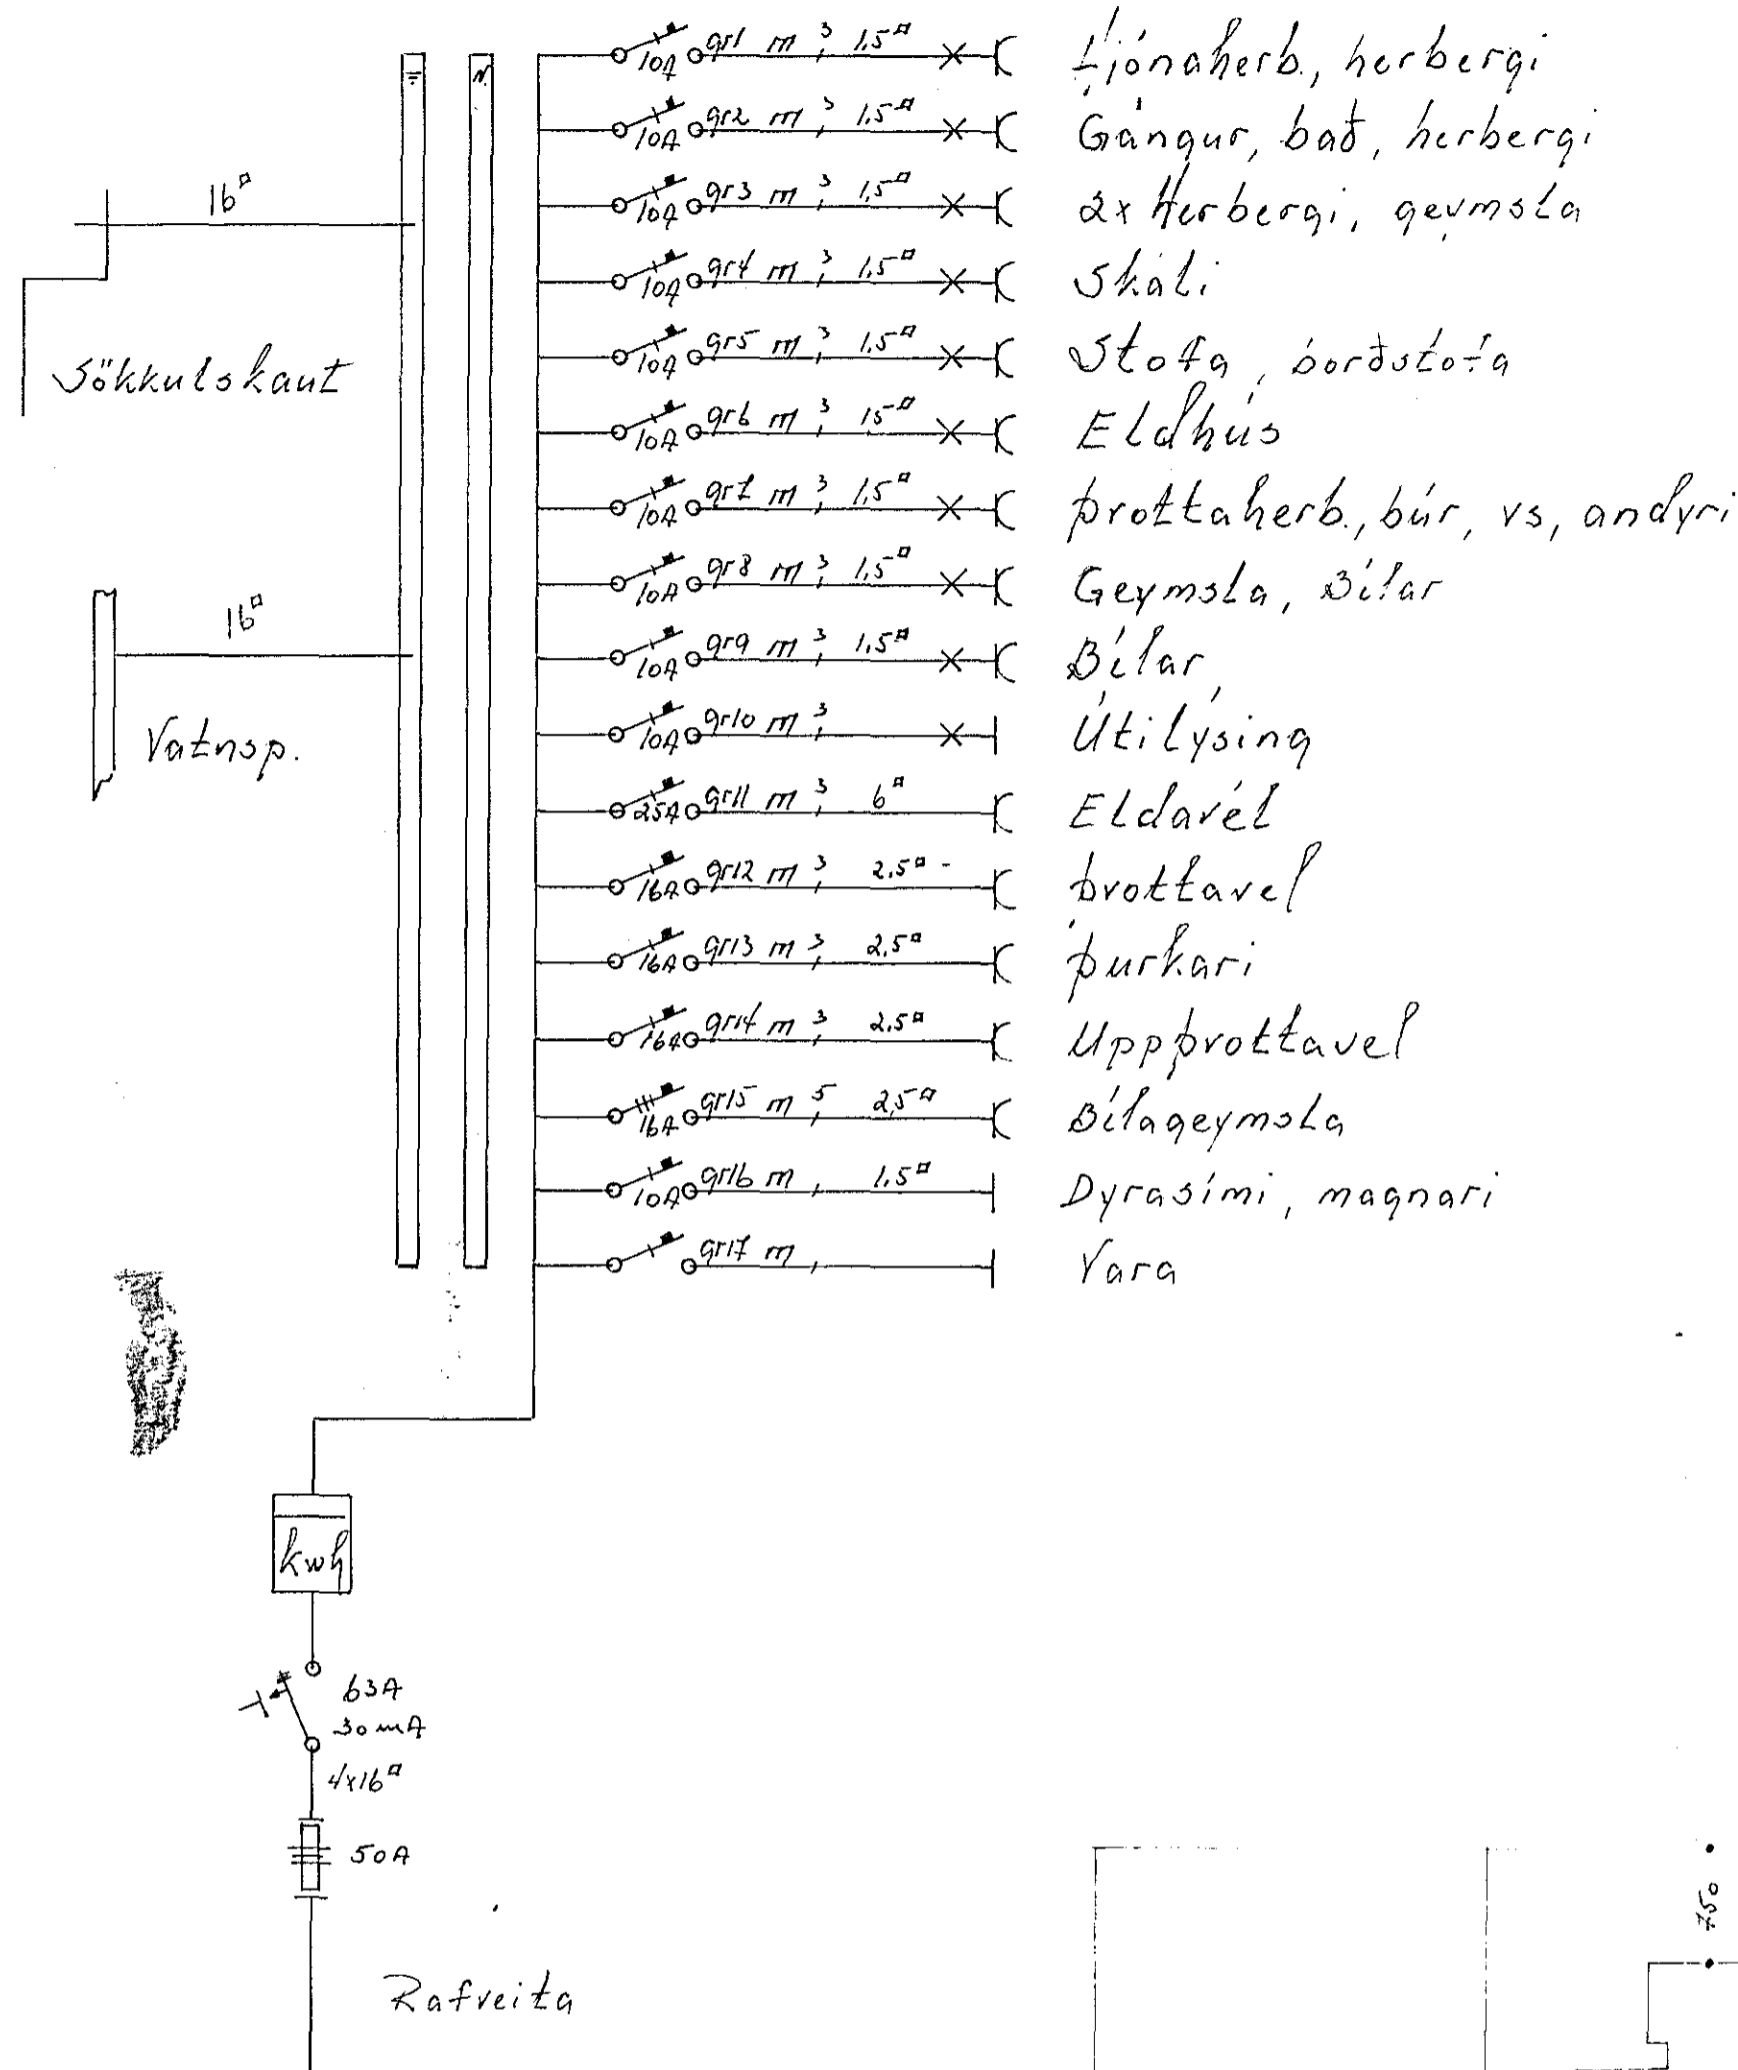 10A gr1 m 3 1,5□ Hjónaherb., herbergi
10A gr2 m 3 1,5□ Gangur, bað, herbergi
10A gr3 m 3 1,5□ 2x Herbergi, geymsla
10A gr4 m 3 1,5□ Skáli
10A gr5 m 3 1,5□ Stofa, borðstofa
10A gr6 m 3 15□ Eldhús
10A gr7 m 3 1,5□ Þvottaherb., búr, vs, andyri
10A gr8 m 3 1,5□ Geymsla, Bílar
10A gr9 m 3 1,5□ Bílar
10A gr10 m 3 Útilýsing
25A gr11 m 3 6□ Eldavél
16A gr12 m 3 2,5□ Þvottavel
16A gr13 m 3 2,5□ Þurkari
16A gr14 m 3 2,5□ Uppþvottavel
16A gr15 m 5 2,5□ Bílageymsla
10A gr16 m 1,5□ Dyrasími, magnari
gr17 m Vara
N
16□
Sökkulskaut
16□
Vatnsp.
kwh
63A
30mA
4x16□
50A
Rafveita
750